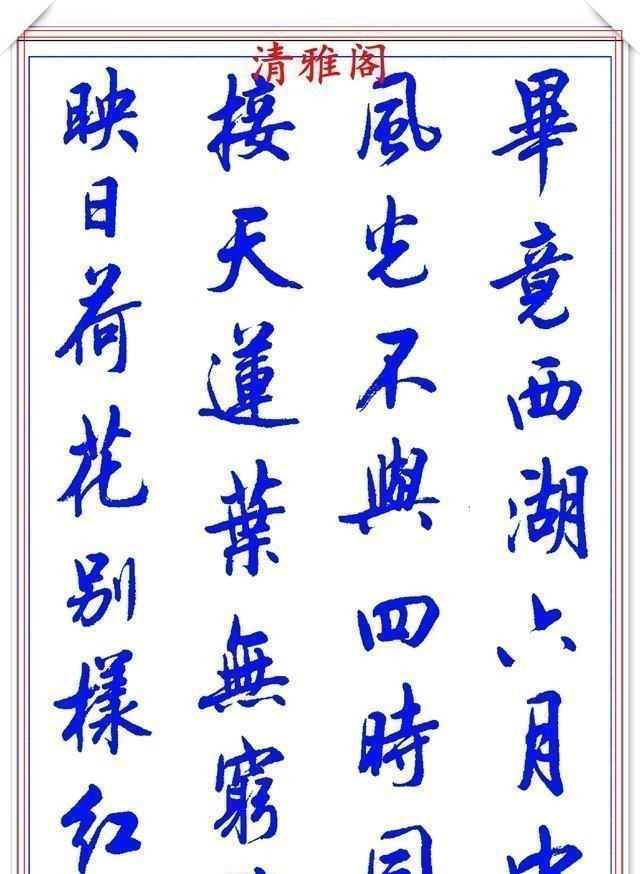 清雅阁
畢竟西湖六月中
風光不與四時同
接天蓮葉無窮
映日荷花别樣紅